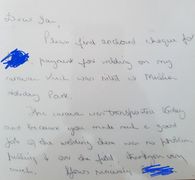 Dear Ian,
Please find enclosed cheque for
payment for welding on my
caravan which was at
Holiday Park.
The caravan was transported today
and because you made such a good
job of the welding there was no problem
pulling it on the field. Thankyou very
much. Yours sincerely